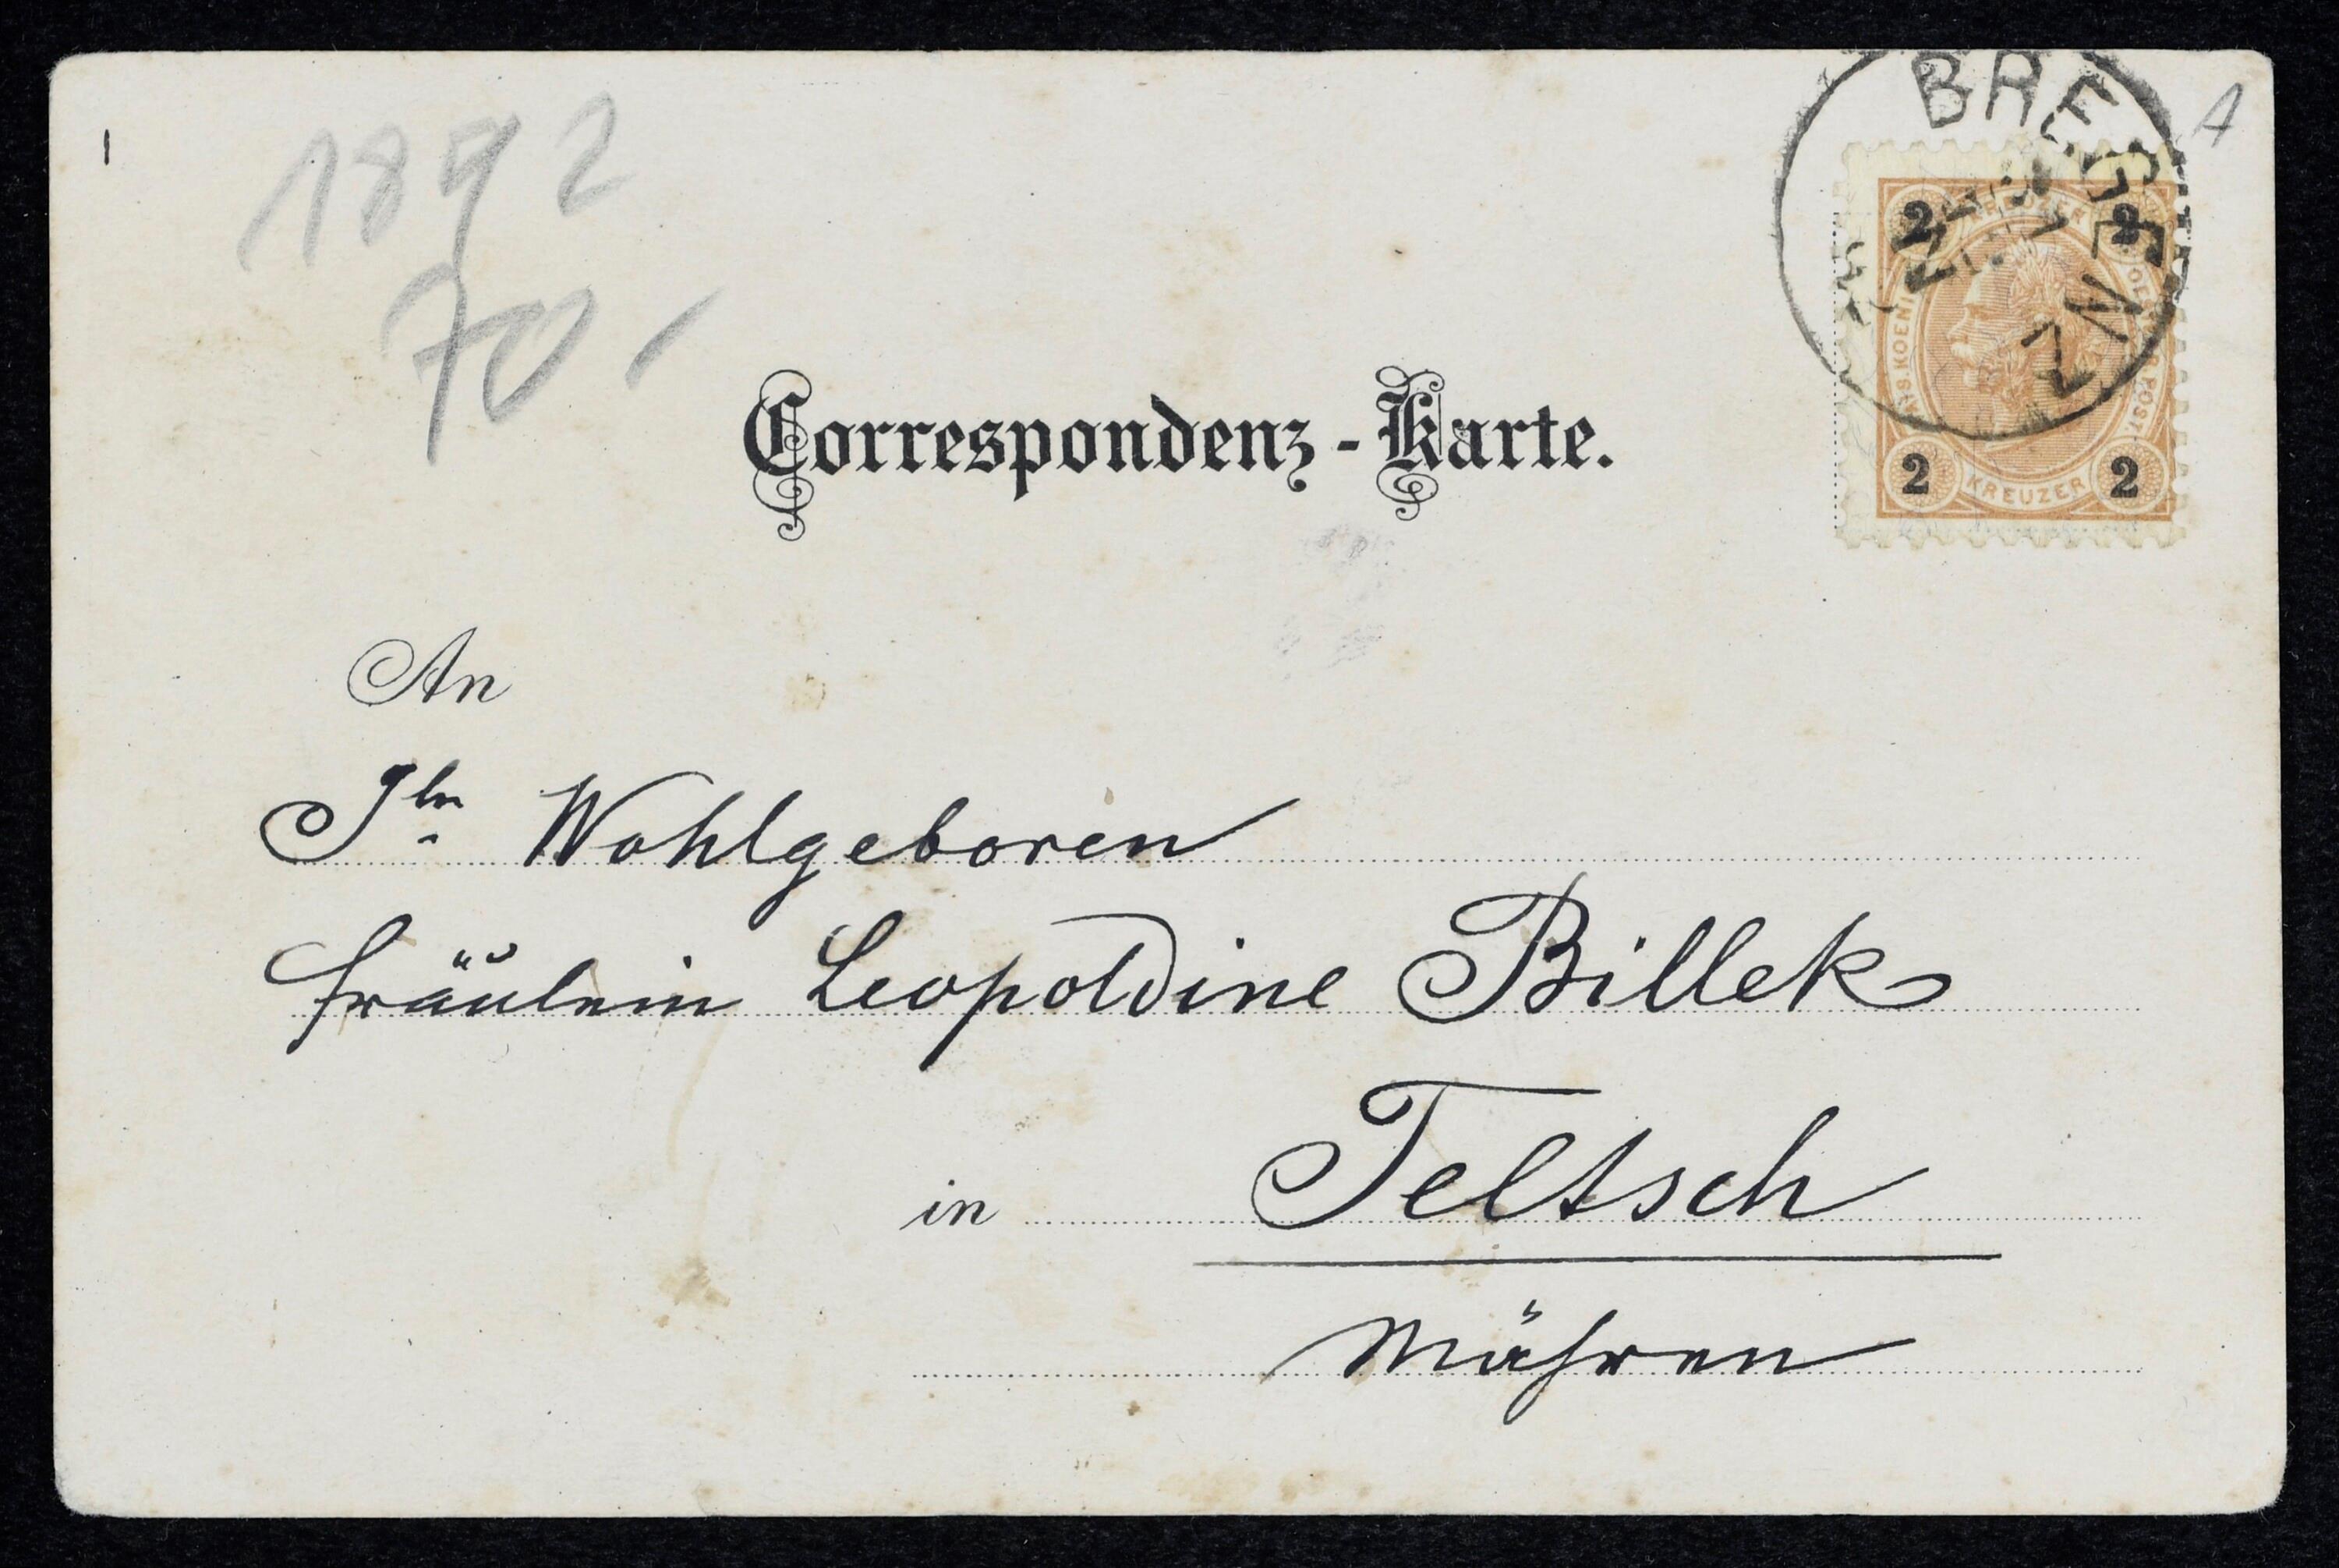 1892
70-
BREGENZ
2 2
KREUZER
2 2
Correspondenz-Karte.
An
Ihr Wohlgeboren
Fräulein Leopoldine Billek
in Teltsch
Mähren